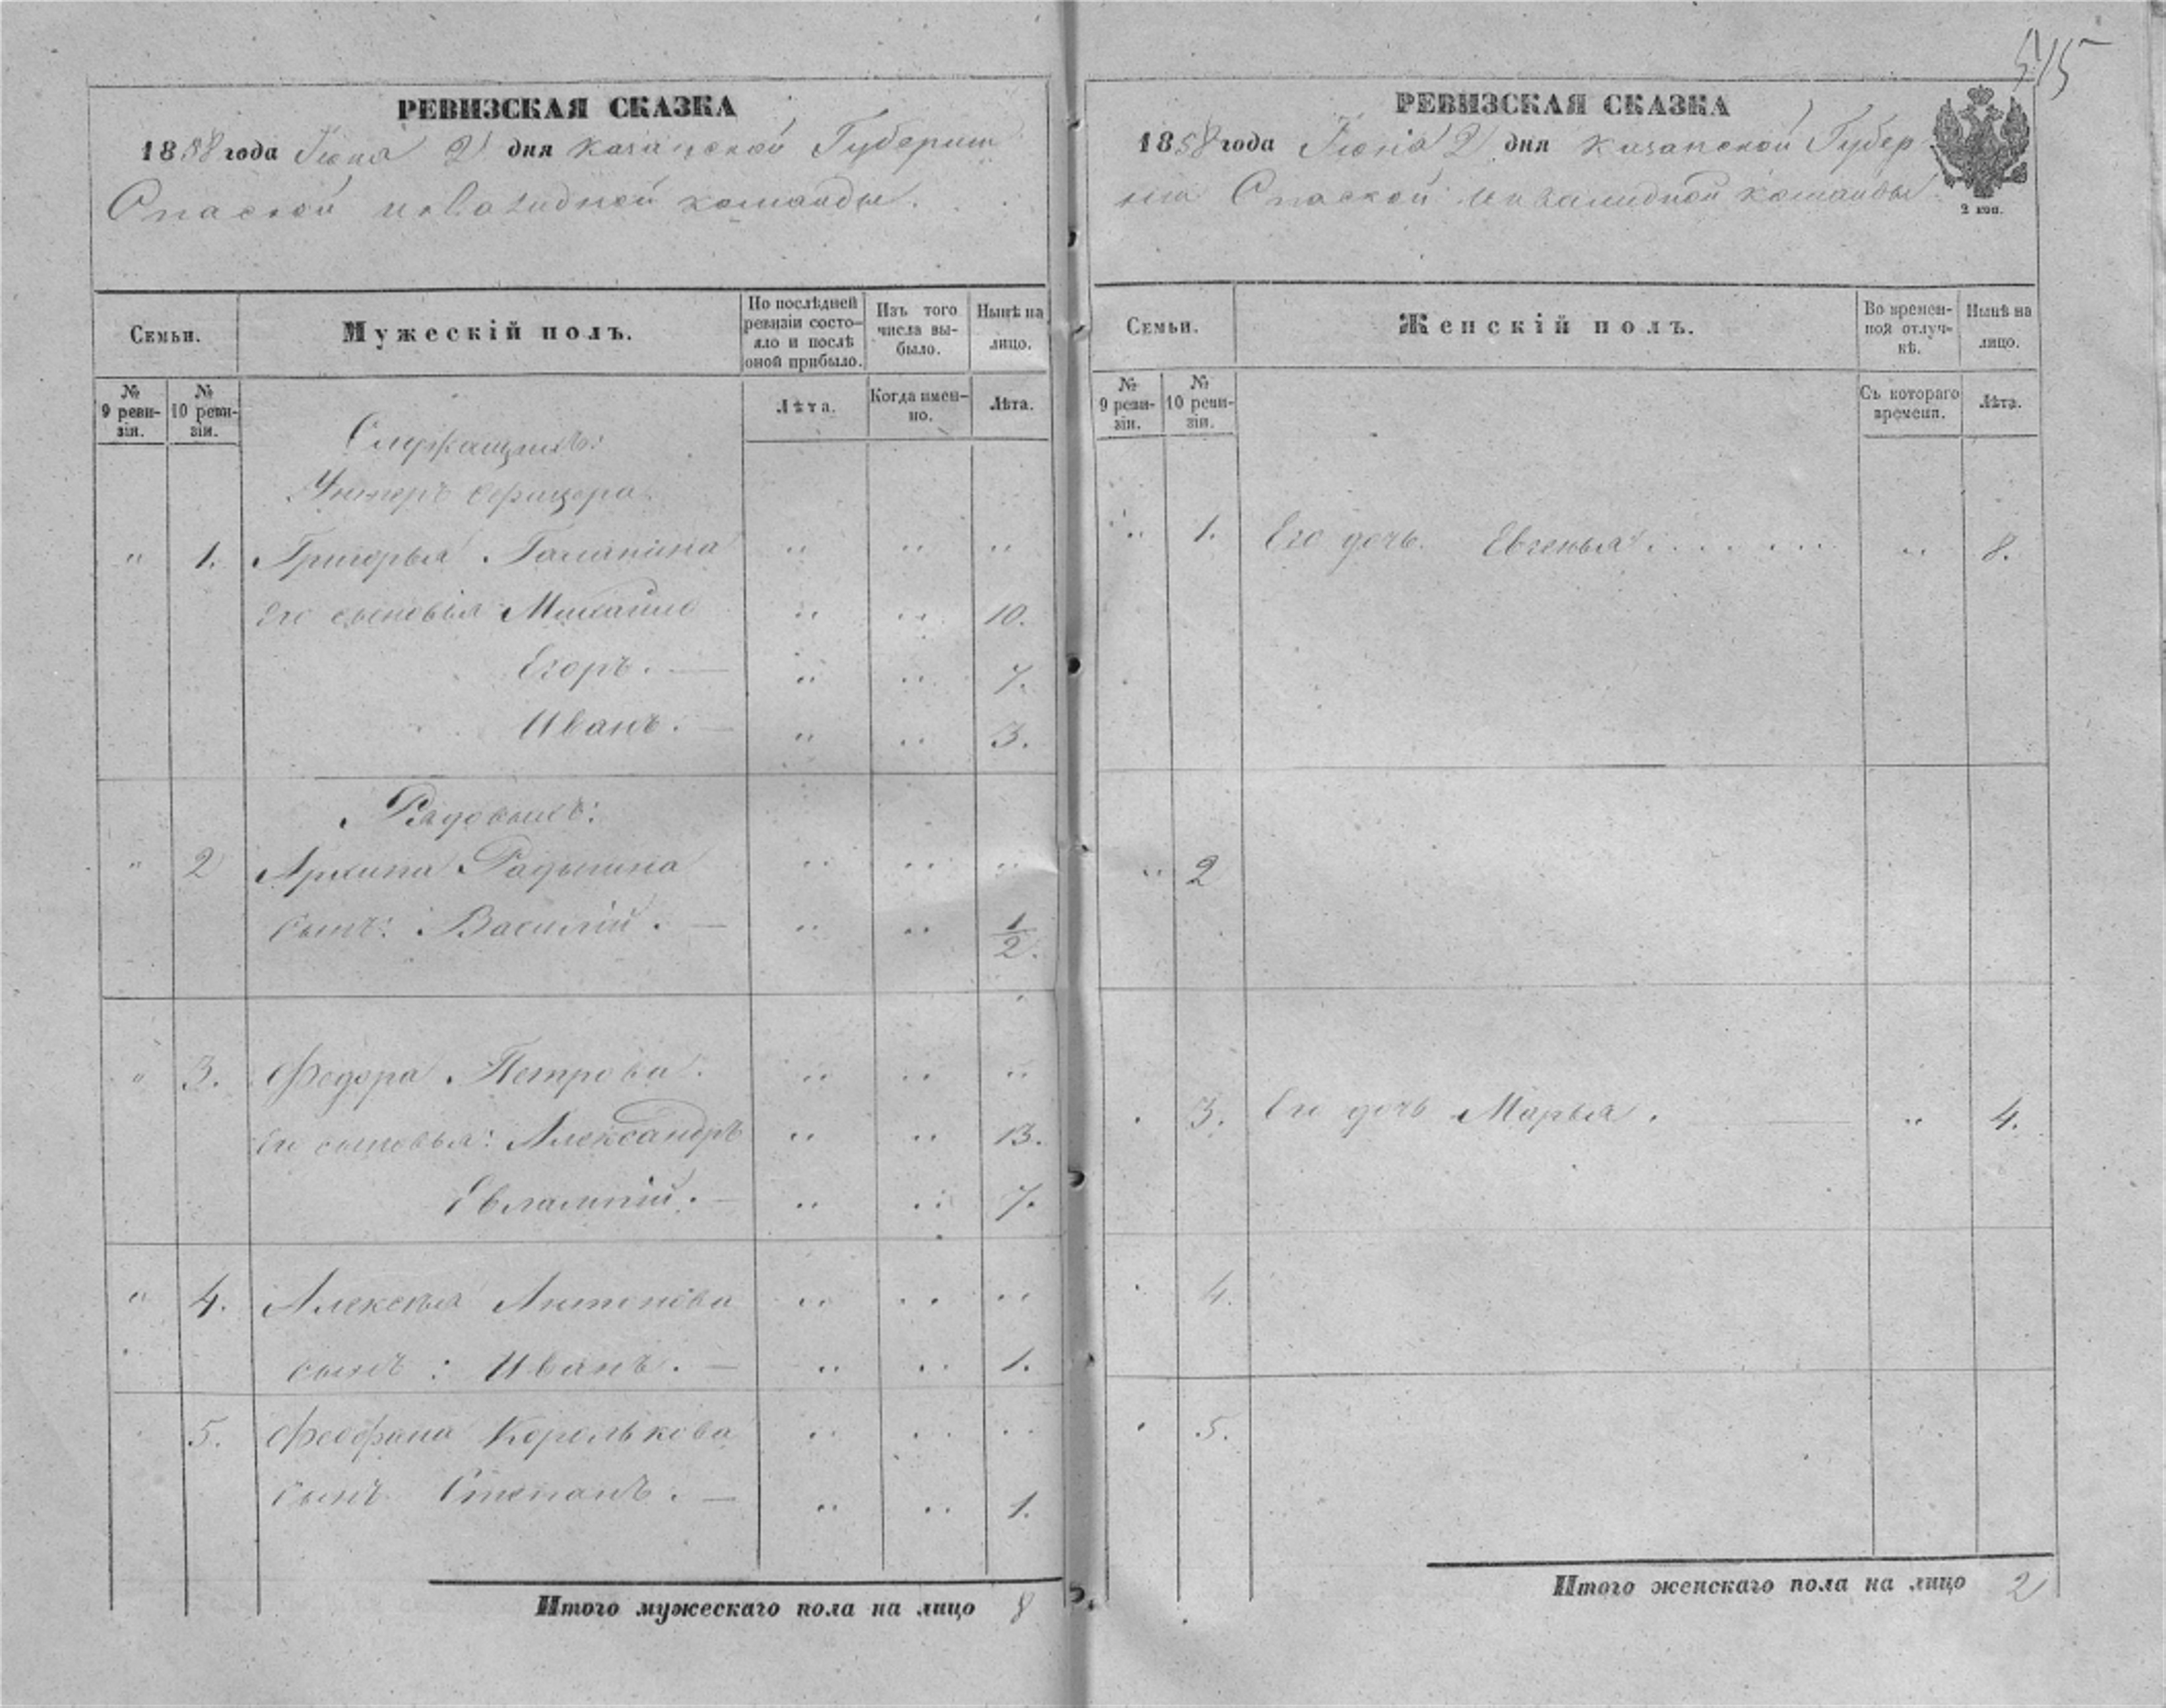 515
РЕВИЗСКАЯ СКАЗКА
1858 года Іюня 2 дня Казанской Губерніи
Спаской инвалидной команды.
Семьи.
Мужескій полъ.
По послѣдней ревизіи состояло и послѣ оной прибыло.
Изъ того числа выбыло.
Нынѣ на лицо.
№ 9 ревизіи.
№ 10 ревизіи.
Лѣта.
Когда именно.
Лѣта.
Служащихъ:
Унтеръ офицера
" 1. Григорья Галанина " " "
Его сыновья Михайло " " 10.
Егоръ. — " " 7.
Иванъ. — " " 3.
Рядовыхъ:
" 2 Архипа Радынина " " "
сынъ: Василій. — " " 1/2.
" 3. Федора Петрова. " " "
Его сыновья: Александръ " " 13.
Евлампій. — " " 7.
" 4. Алексея Антонова " " "
сынъ: Иванъ. — " " 1.
5. Феофана Королькова " " "
сынъ Степанъ. — " " 1.
Итого мужескаго пола на лицо 8
РЕВИЗСКАЯ СКАЗКА
1858 года Іюня 2 дня Казанской Губер
ніи Спаской инвалидной команды
2 коп.
Семьи.
Женскій полъ.
Во временной отлучкѣ.
Нынѣ на лицо.
№ 9 ревизіи.
№ 10 ревизіи.
Съ котораго времени.
Лѣта.
" 1. Его дочь Евгенья . . . . . . " 8.
" 2
3. Его дочь Марья. — " 4.
4.
5.
Итого женскаго пола на лицо 2